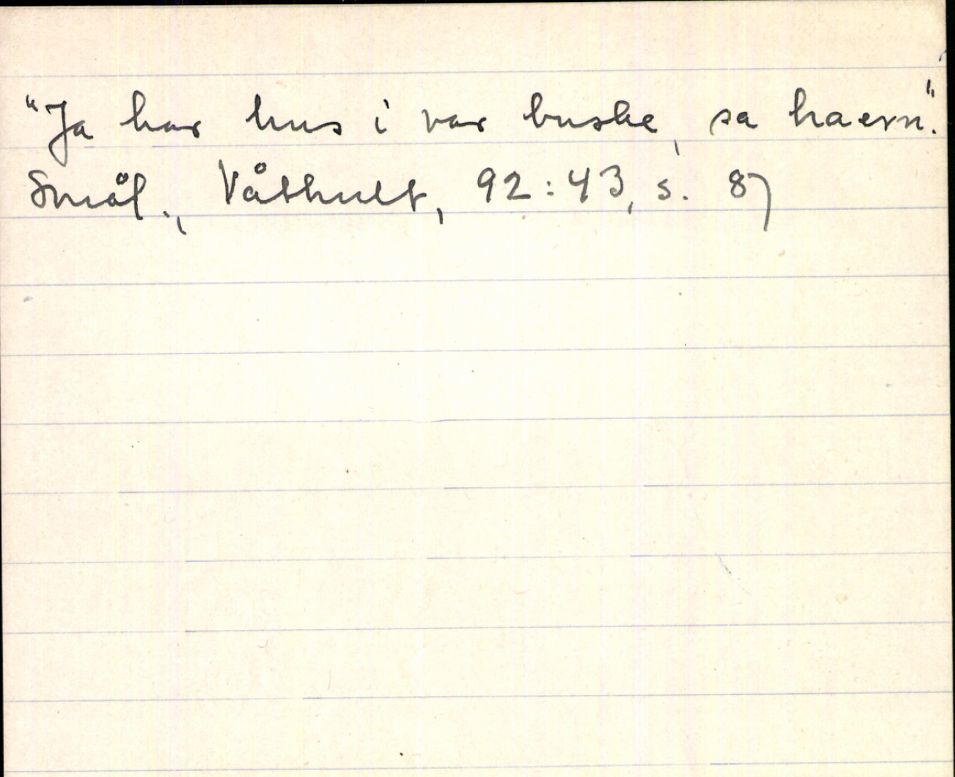 "Ja har hus i var buske, sa haern."
Smål., Våthult, 92:43, s. 87